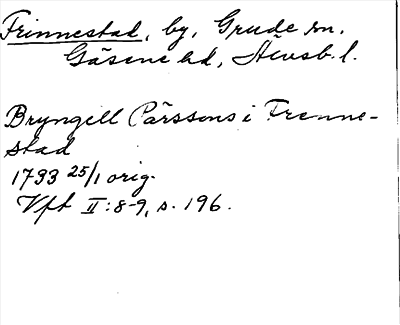 Frinnestad, by, Grude sn.
Gäsene hd, Älvsb. l.
Bryngell Pärssons i Frenne-
stad
1793 25/1 orig.
Vft II:8-9, s. 196.